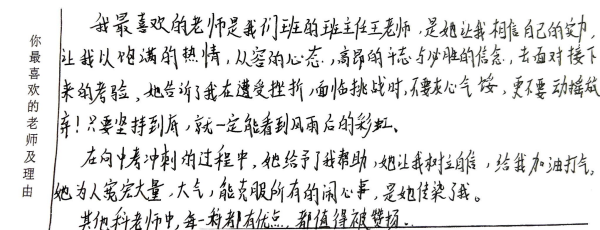 你最喜欢的老师及理由
我最喜欢的老师是我们班的班主任王老师，是她让我相信自己的实力，
让我以饱满的热情，从容的心态，高昂的斗志与必胜的信念，去面对接下
来的考验，她告诉了我在遭受挫折，面临挑战时，不要灰心气馁，更不要动摇放
弃！只要坚持到底，就一定能看到风雨后的彩虹。
在向中考冲刺的过程中，她给予了我帮助，她让我树立自信，给我加油打气。
她为人宽宏大量，大气，能克服所有的闹心事，是她传染了我。
其他科老师中，每一科都有优点，都值得被赞扬。